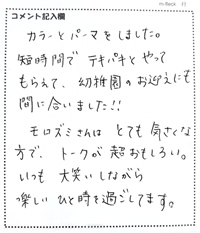 コメント記入欄
カラーとパーマをしました。
短時間で テキパキと やって
もらえて、幼稚園の お迎えにも
間に合いました!!
モロズミさんは とても 気さくな
方で、トークが 超おもしろい。
いつも 大笑いしながら
楽しい ひと時を過ごしてます。